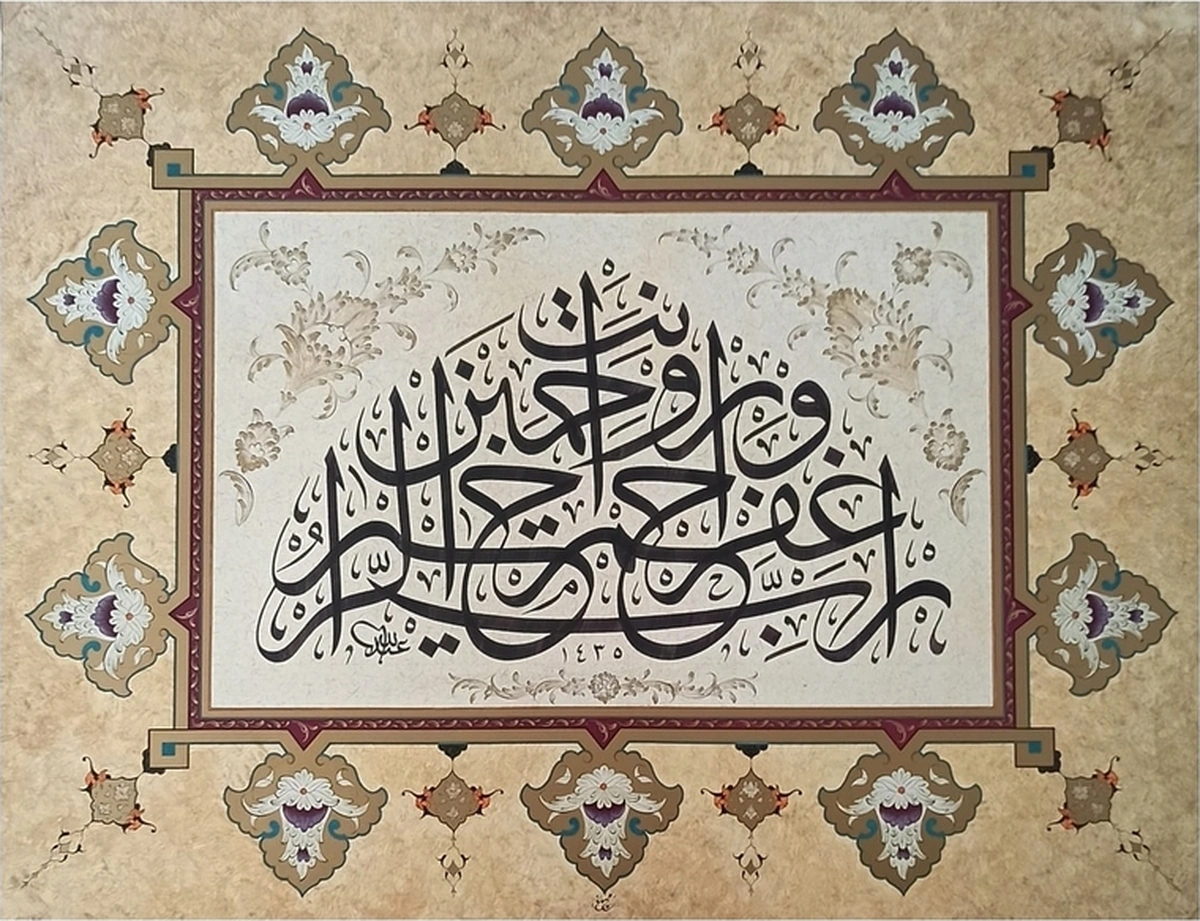 رب اغفر وارحم وأنت خير الراحمين
١٤٣٥